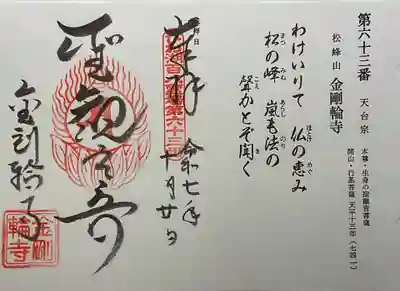 第六十三番 天台宗
本尊・生身の聖観音菩薩
松峰山 金剛輪寺
開山・行基菩薩 天平十三年(七四一)
わけいりて 仏の恵み
松の峰 嵐も法の
聲かとぞ聞く
奉拝 令和七年
十月廿日
第六十三
金剛輪寺
金剛
輪寺